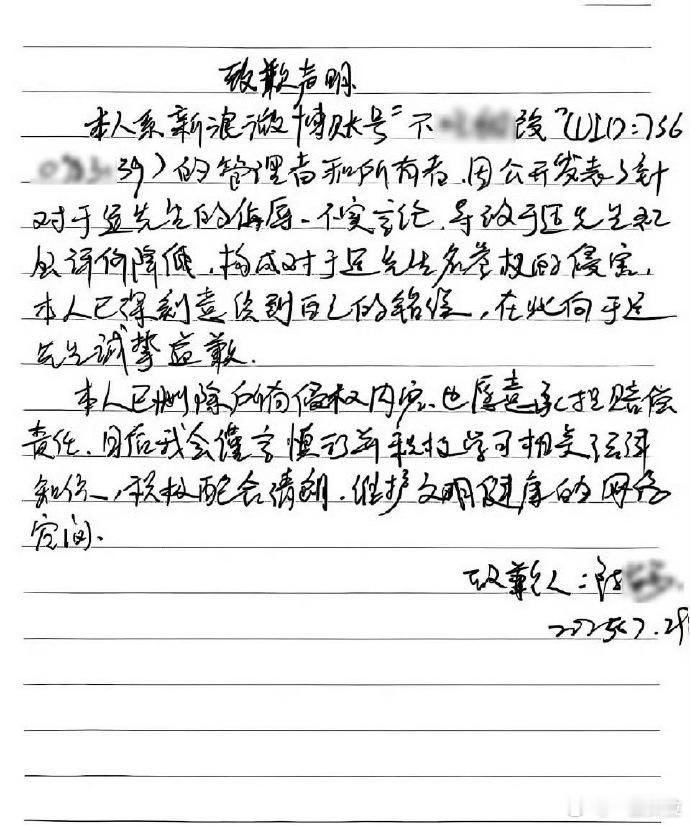 致歉声明
本人系新浪微博账号“不 改”(UID:756
39)的管理者和所有者,因公开发表了针
对于适先生的侮辱、不实言论,导致于适先生社
会评价降低,构成对于适先生名誉权的侵害,
本人已深刻意识到自己的错误,在此向于适
先生诚挚道歉.
本人已删除所有侵权内容、也愿意承担赔偿
责任.日后我会谨言慎行并积极学习相关法律
知识,积极配合清朗.维护文明健康的网络
空间.
致歉人:陈
2025.7.29